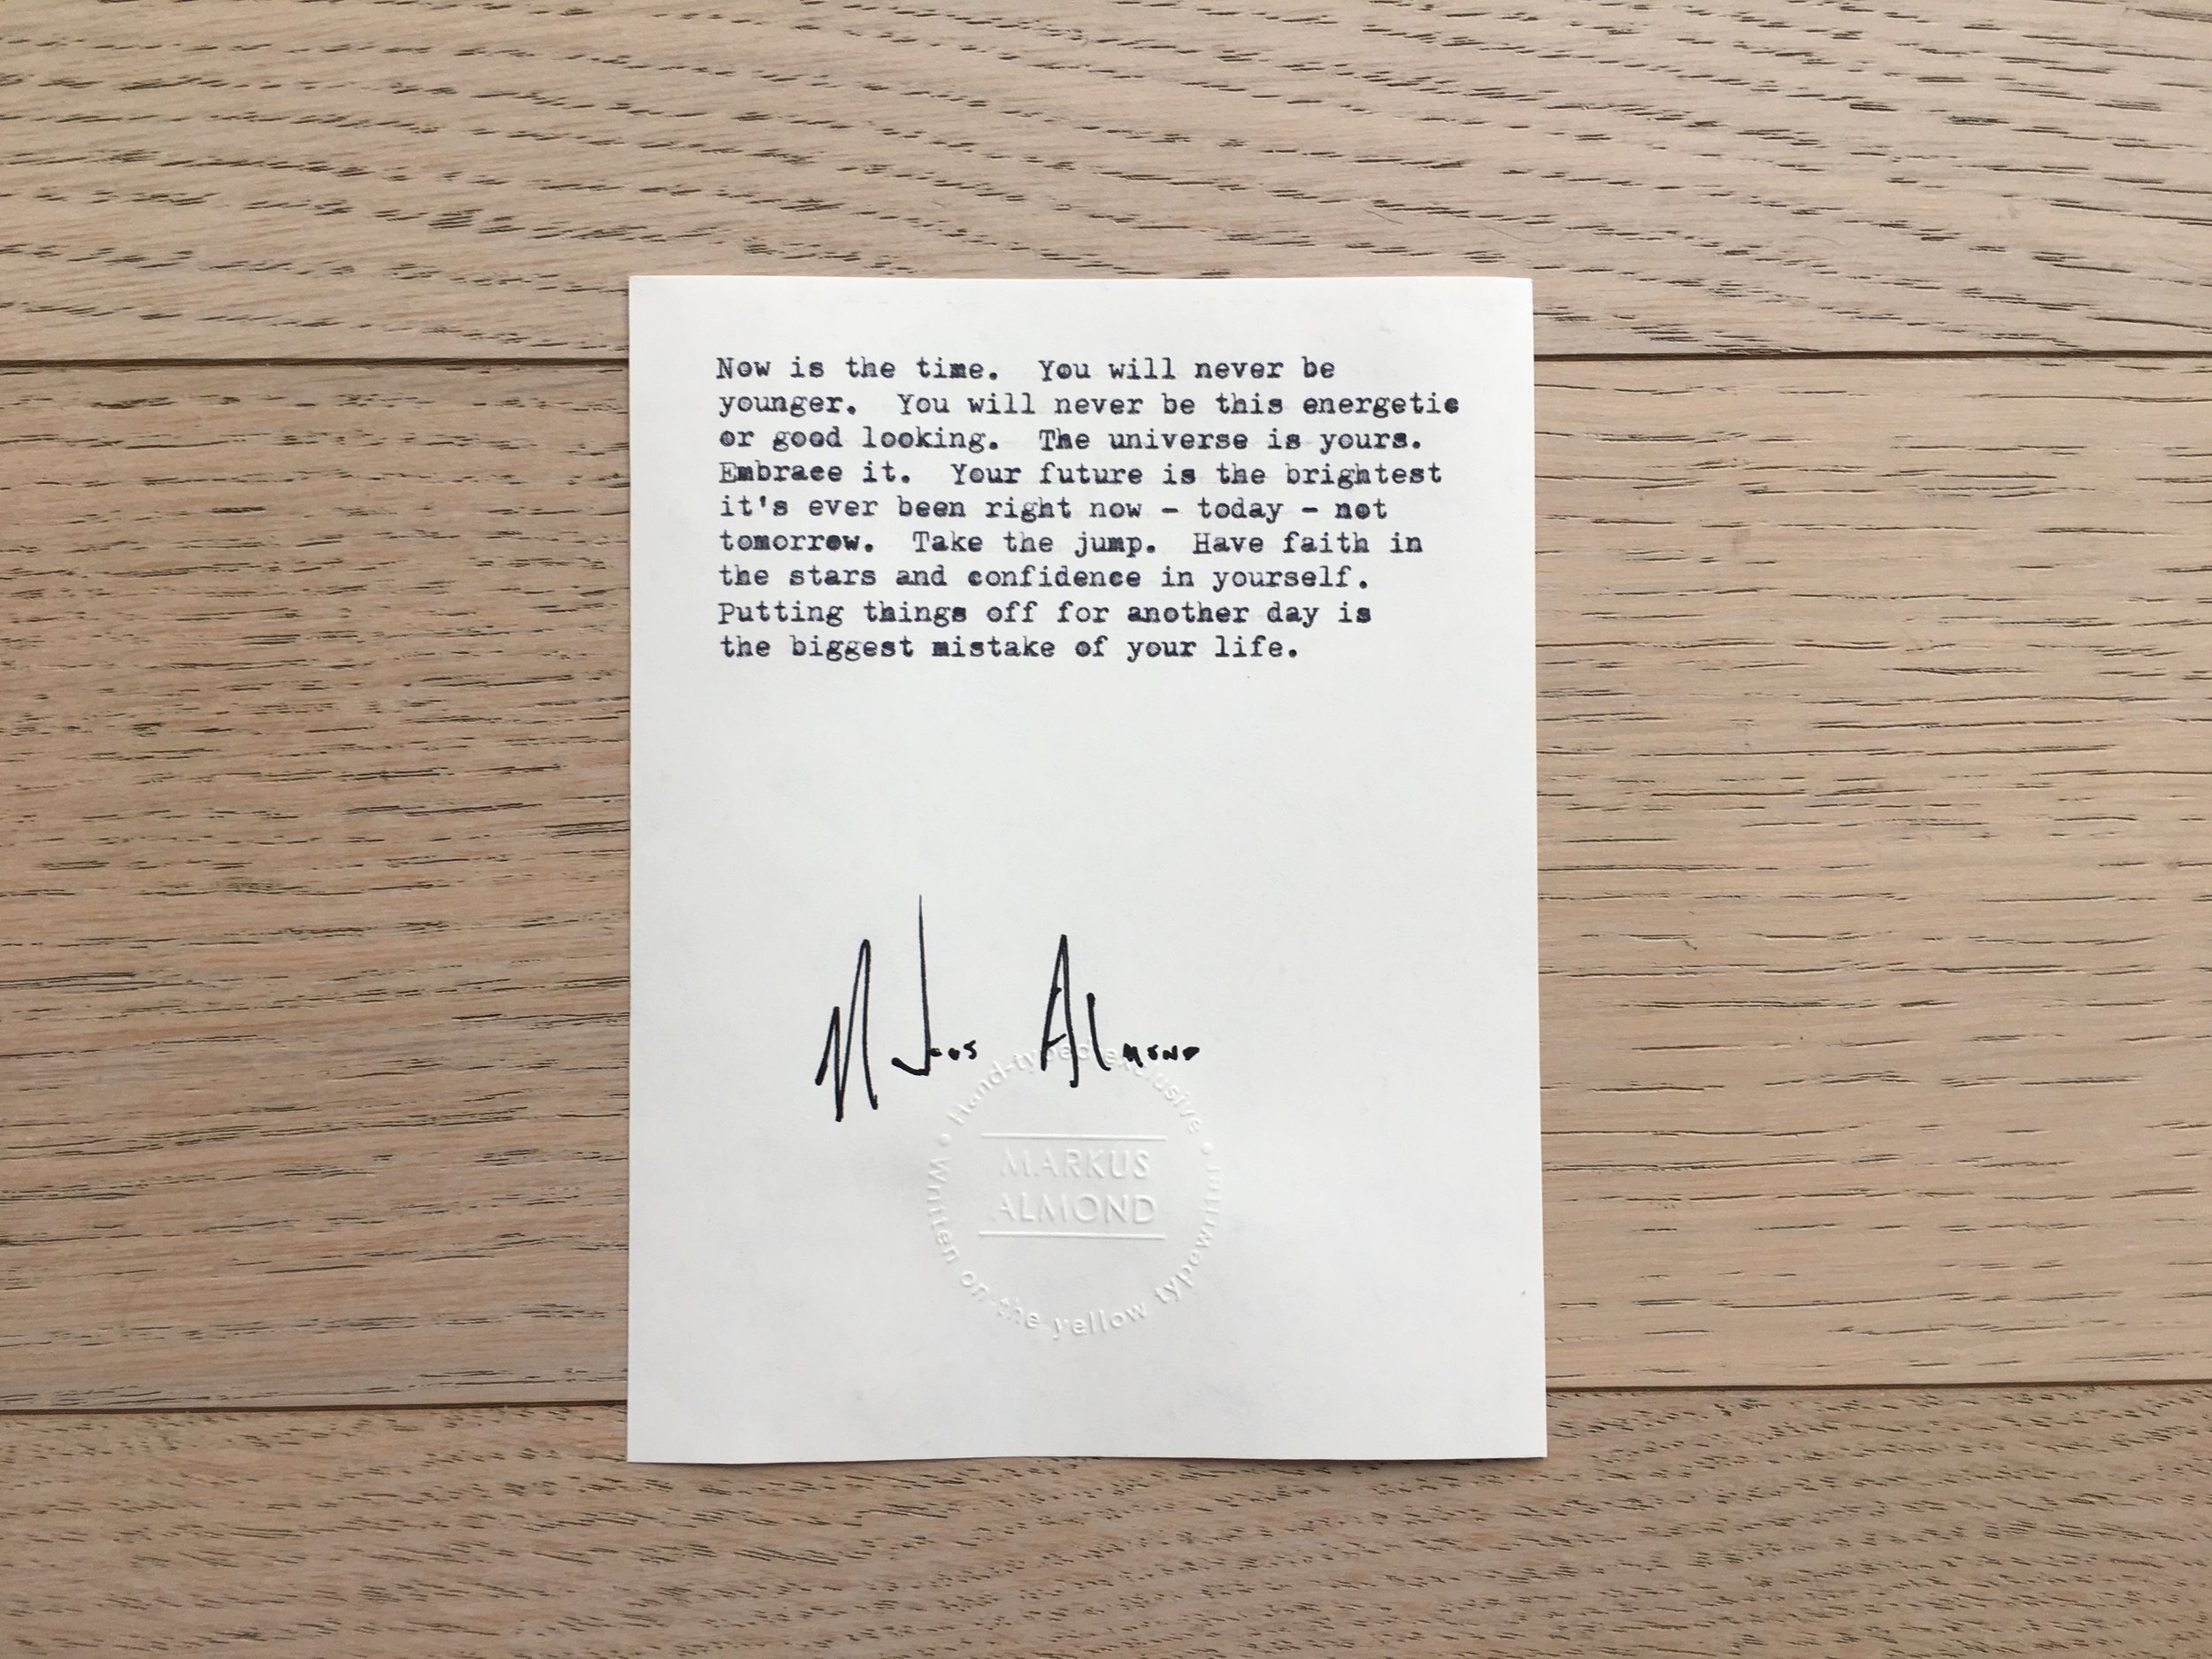 Now is the time.  You will never be
younger.  You will never be this energetic
or good looking.  The universe is yours.
Embrace it.  Your future is the brightest
it's ever been right now - today - not
tomorrow.  Take the jump.  Have faith in
the stars and confidence in yourself.
Putting things off for another day is
the biggest mistake of your life.
Almond
• Hand-typed exclusive •
MARKUS
ALMOND
Written on the yellow typewriter